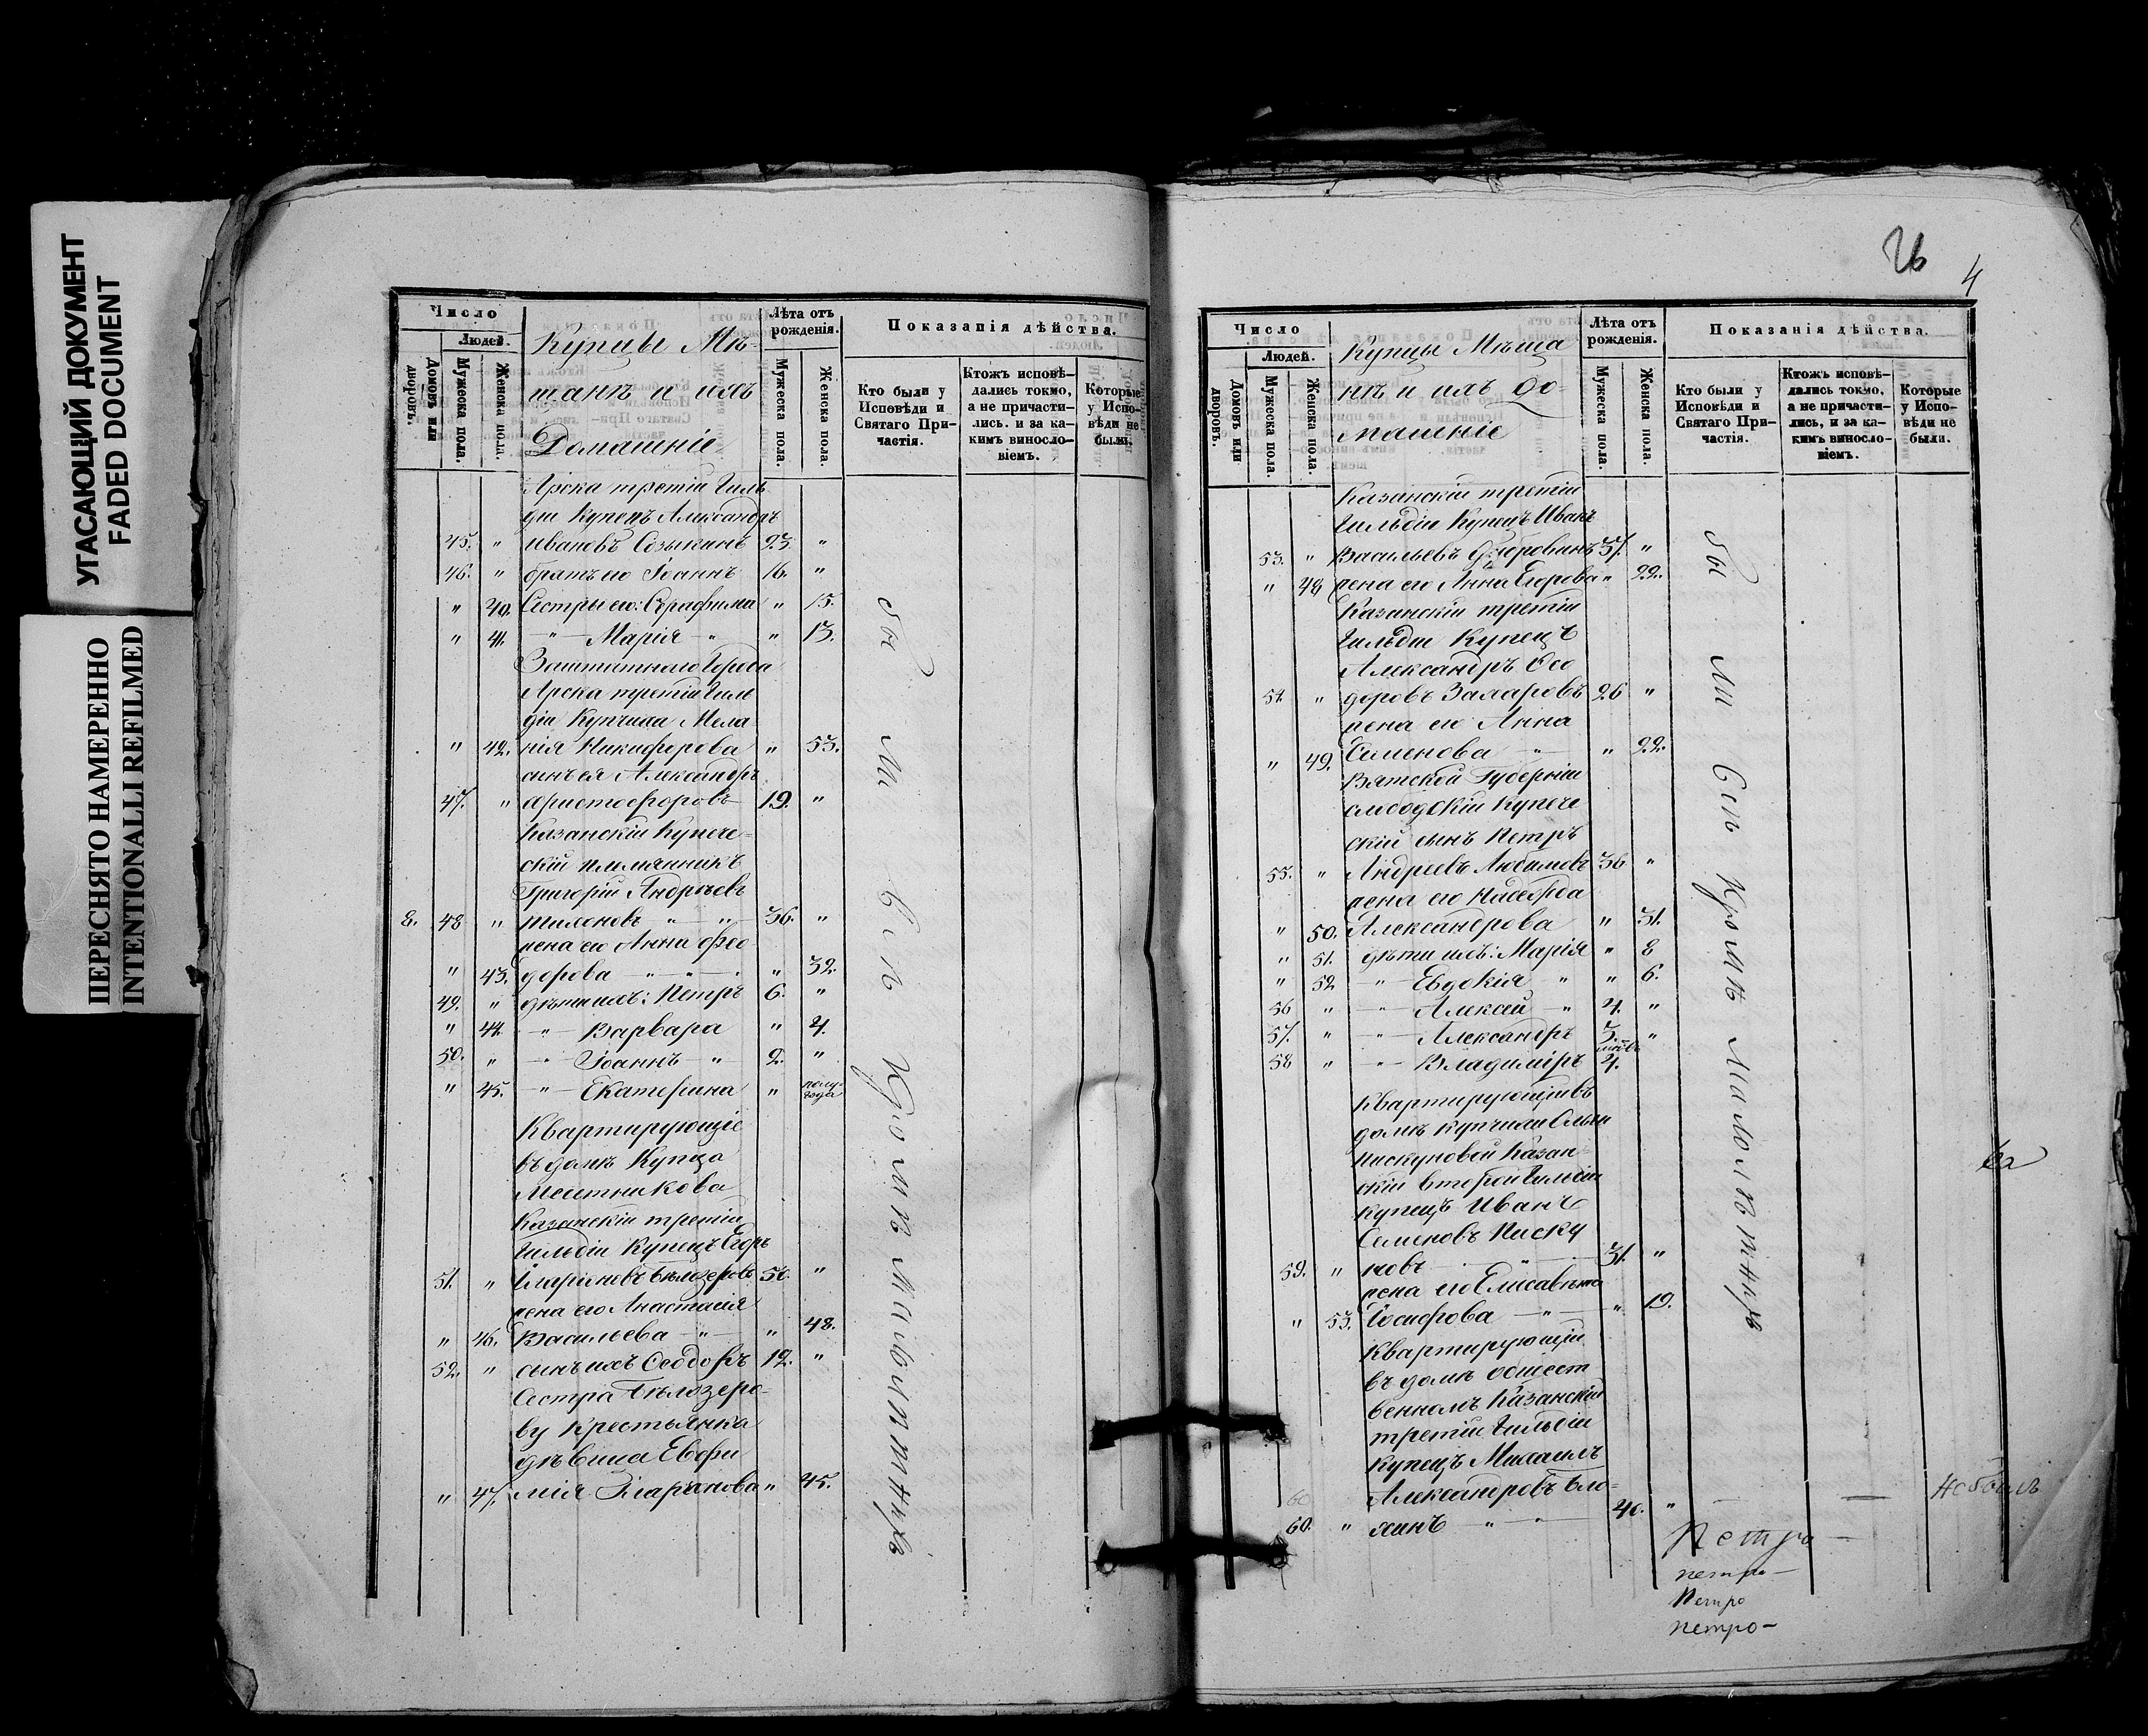 УГАСАЮЩИЙ ДОКУМЕНТ
FADED DOCUMENT
ПЕРЕСНЯТО НАМЕРЕННО
INTENTIONALLI REFILMED
Число
Людей.
Домовъ или дворовъ.
Мужеска пола.
Женска пола.
Купцы Мѣ-
щанѣ и ихъ
Домашніе
Лѣта отъ рожденія.
Мужеска пола.
Женска пола.
Показанія дѣйства.
Кто были у Исповѣди и Святаго При-частія.
Ктожъ исповѣ-дались токмо, а не причасти-лись. и за ка-кимъ винословіемъ.
Которые у Испо-вѣди не были.
Арска третій Гиль
діи Купецъ Александръ
45. " Ивановъ 23. "
46. " братъ его Іоаннъ 16. "
" 40. Сестры его: Серафима " 15.
" 41. " Марія " " 13.
Заштатнаго Города
Арска третій Гиль
діи Купчиха Мела
" 42. нія Никифорова " 53.
сынъ ея Александръ
47. " Христофоровъ 19. "
Казанскій Купече-
скій племянникъ
Григорій Андреевъ
8. 48 " " " 36. "
жена его Анна Фео
" 43. дорова " " " 32.
49. " дѣти ихъ: Петръ 6. "
" 44. " Варвара " 4.
50. " " Іоаннъ " 2. "
" 45. " Екатерина " полу-года
Квартирующіе
въ домѣ Купца
Месетникова
Казанскій третій
Гильдіи Купецъ Егоръ
51. " Иларіоновъ Бѣлозеровъ 50. "
жена его Анастасія
" 46. Васильева " " 48.
52. " сынъ ихъ Ѳеодоръ 12. "
Сестра Бѣлозеро-
ву Крестьянка
дѣвица Евфи
" 47. мія Иларіонова " 45.
бы ли всѣ Кромѣ малолѣтнихъ
26
4
Число
Людей.
Домовъ или дворовъ.
Мужеска пола.
Женска пола.
Купцы Мѣща
нѣ и ихъ до-
машніе
Лѣта отъ рожденія.
Мужеска пола.
Женска пола.
Показанія дѣйства.
Кто были у Исповѣди и Святаго При-частія.
Ктожъ исповѣ-дались токмо, а не причасти-лись. и за ка-кимъ винословіемъ.
Которые у Испо-вѣди не были.
Казанскій третій
Гильдіи Купецъ Иванъ
53. " Васильевъ 37. "
" 48 жена его Анна Егорова " 22.
Казанскій третій
Гильдіи Купецъ
Александръ Ѳео
54. " доровъ Захаровъ 26 "
жена его Анна
" 49. Семенова " " 22.
Вятской Губерніи
слободскій Купече
скій сынъ Петръ
55. " Андреевъ Любимовъ 36 "
жена его Надежда
" 50. Александрова " 31.
" 51. дѣти ихъ: Марія " 8
" 52 " Евдокія " " 6.
56 " " Алексѣй " 4. "
57. " " Александръ 3. "
58 " " Владиміръ 4.
Квартирующій въ
домѣ купчихи Ольги
Пискуновой Казан-
скій второй Гильдіи
купецъ Иванъ
Семеновъ Писку
59. " новъ " 31. "
жена его Елисавета
" 53. Іосифова " " 19.
Квартирующій
въ домѣ общест
венномъ Казанскій
третій Гильдіи
купецъ Михаилъ
60 Александровъ Бло-
60. " хинъ " " 40. "
бы ли всѣ Кромѣ малолѣтнихъ
не былъ
Петро
петро-
Петро
петро-